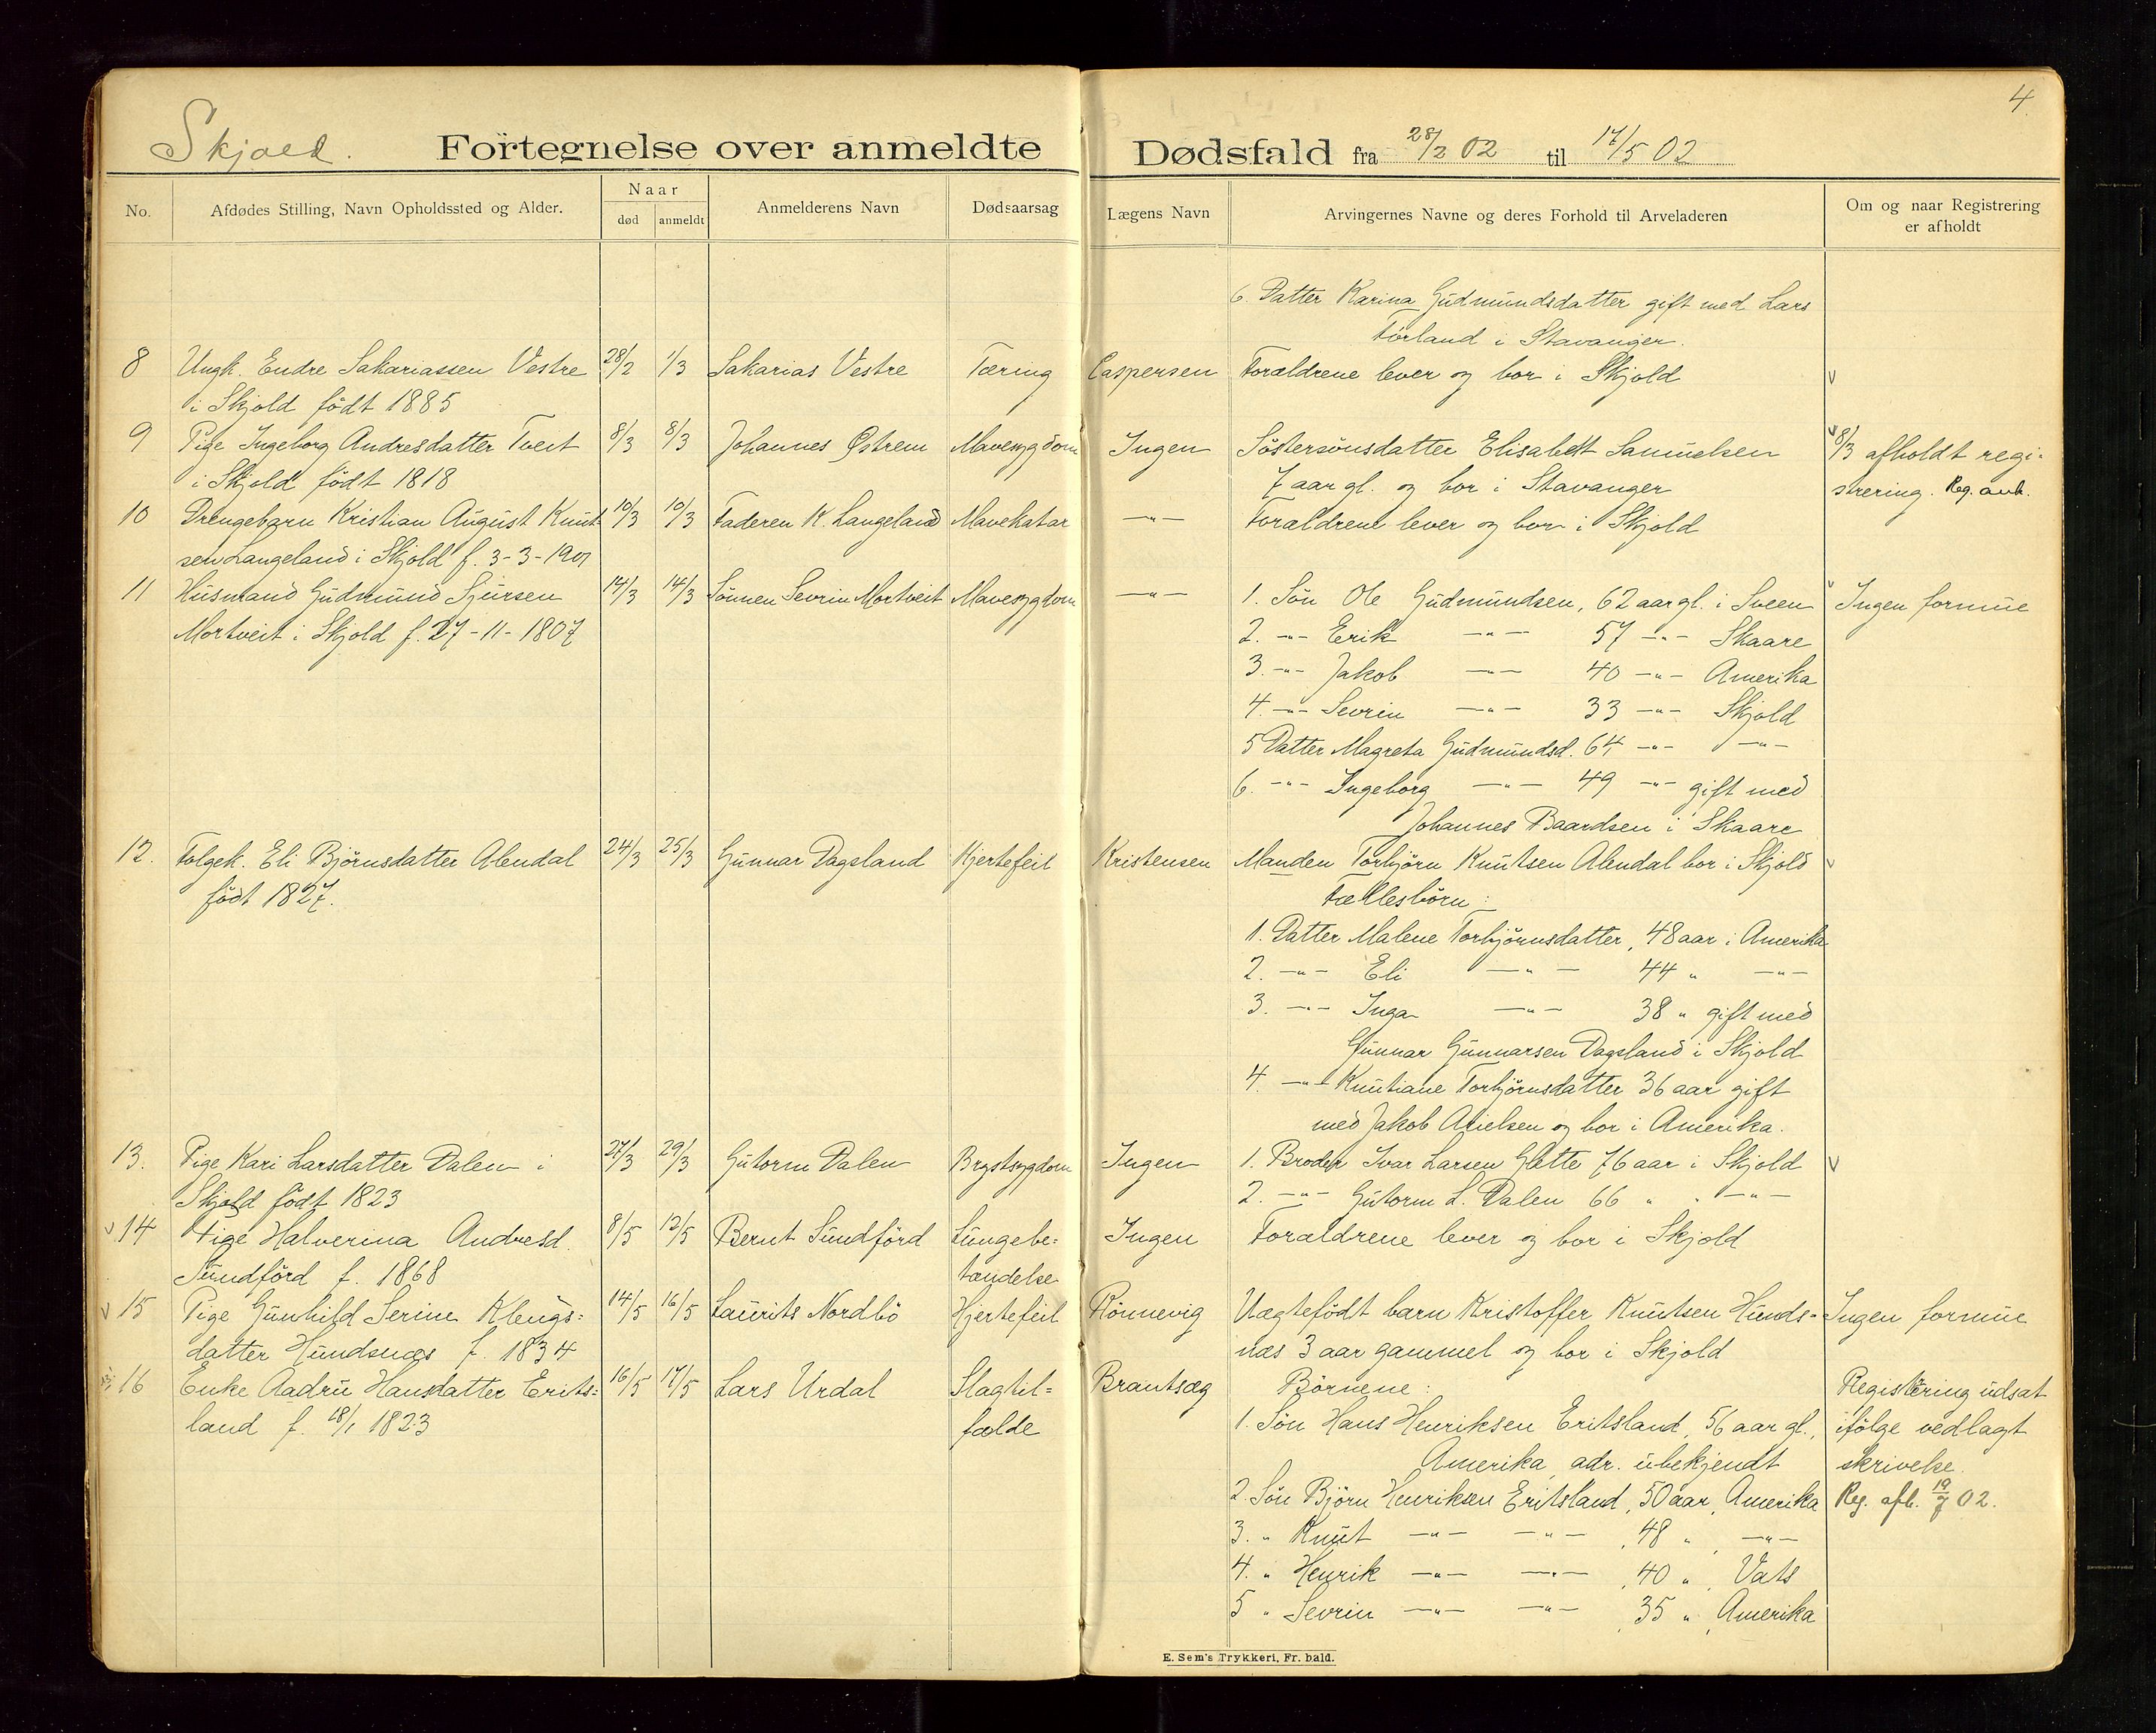 4.
Skjold. Fortegnelse over anmeldte Dødsfald fra 28/2 02 til 17/5 02
No. Afdødes Stilling, Navn Opholdssted og Alder. Naar død anmeldt Anmelderens Navn Dødsaarsag Lægens Navn Arvingernes Navne og deres Forhold til Arveladeren Om og naar Registrering er afholdt
6. Datter Karina Gudmundsdatter gift med Lars
Førland i Stavanger.
8 Ungk. Endre Sakariassen Vestre 28/2 1/3 Sakarias Vestre Tæring Caspersen Forældrene lever og bor i Skjold v
i Skjold födt 1885
9 Pige Ingeborg Andresdatter Tveit 8/3 8/3 Johannes Østrem Mavesygdom Ingen Söstersönsdatter Elisabett Samuelsen v 8/3 afholdt regi-
i Skjold födt 1818 7 aar gl. og bor i Stavanger strering. Reg. anh.
10 Drengebarn Kristian August Knut 10/3 10/3 Faderen K. Langeland Mavekatar —"— Forældrene lever og bor i Skjold
sen Langeland i Skjold f. 3-3-1901
11 Husmand Gudmund Sjursen 14/3 14/3 Sönnen Sevrin Mortveit Mavesygdom —"— 1. Sön Ole Gudmundsen, 62 aar gl. i Sveen v Ingen formue
Mortveit i Skjold f. 27-11-1807 2. -"- Erik —"— 57 -"- Skaare
3. -"- Jakob —"— 40 -"- Amerika
4. -"- Sevrin —"— 33 -"- Skjold
5 Datter Magreta Gudmundsd. 64 -"- —"—
6. -"- Ingeborg —"— 49 -"- gift med
Johannes Baardsen i Skaare
12. Folgek. Eli Björnsdatter Alendal 24/3 25/3 Gunnar Dagsland Hjertefeil Kristensen Manden Torbjörn Knutsen Alendal bor i Skjold v
födt 1827. Fællesbörn:
1. Datter Malene Torbjörnsdatter, 48 aar i Amerika
2. -"- Eli —"— 44 " —"—
3. -"- Inga —"— 38 " gift med
Gunnar Gunnarsen Dagsland i Skjold
4. -"- Knutiane Torbjörnsdatter 36 aar gift
med Jakob Atielsen og bor i Amerika.
13. Pige Kari Larsdatter Dalen i 27/3 29/3 Gutorm Dalen Brystsygdom Ingen 1. Broder Ivar Larsen Glette 76 aar i Skjold v
Skjold födt 1823 2. -"- Gutorm L. Dalen 66 " " -"-
v 14 Pige Halverina Andresd. 8/5 12/5 Bernt Sundförd Lungebe= Ingen Forældrene lever og bor i Skjold
Sundförd f. 1868 tændelse
v 15 Pige Gunhild Serine Klengs= 14/5 16/5 Laurits Nordbö Hjertefeil Rönnevig Uægtefödt barn Kristoffer Knutsen Hunds- Ingen formue
datter Hundsnæs f. 1834 næs 3 aar gammel og bor i Skjold
16 Enke Aadru Hansdatter Erits= 16/5 17/5 Lars Urdal Slagtil= Brantsæg Börnene: Registering udsat
land f. 18/1 1823 fælde 1. Sön Hans Henriksen Eritsland, 56 aar gl., ifölge vedlagt
Amerika, adr. ubekjendt skrivelse.
2. Sön Björn Henriksen Eritsland, 50 aar, Amerika Reg. afh. 19/7 02.
3. " Knut —"— —"— , 48 " , —"—
4. " Henrik —"— —"— , 40 " , Vats
5 " Sevrin —"— —"— , 35 " , Amerika
E. Sem's Trykkeri, Fr. hald.